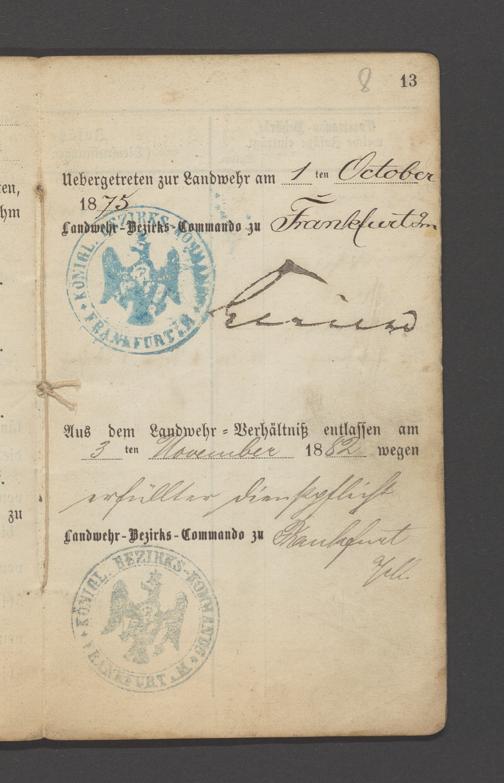 8 13
Uebergetreten zur Landwehr am 1 ten October
1875
Landwehr-Bezirks-Commando zu Frankfurt a/m
KÖNIGL. BEZIRKS-KOMMANDO
FRANKFURT A. M.
Aus dem Landwehr-Verhältniß entlassen am
3 ten November 1882 wegen
erfüllter Dienstpflicht
Landwehr-Bezirks-Commando zu Frankfurt
KÖNIGL. BEZIRKS-KOMMANDO
FRANKFURT A. M.
ten,
hm
zu